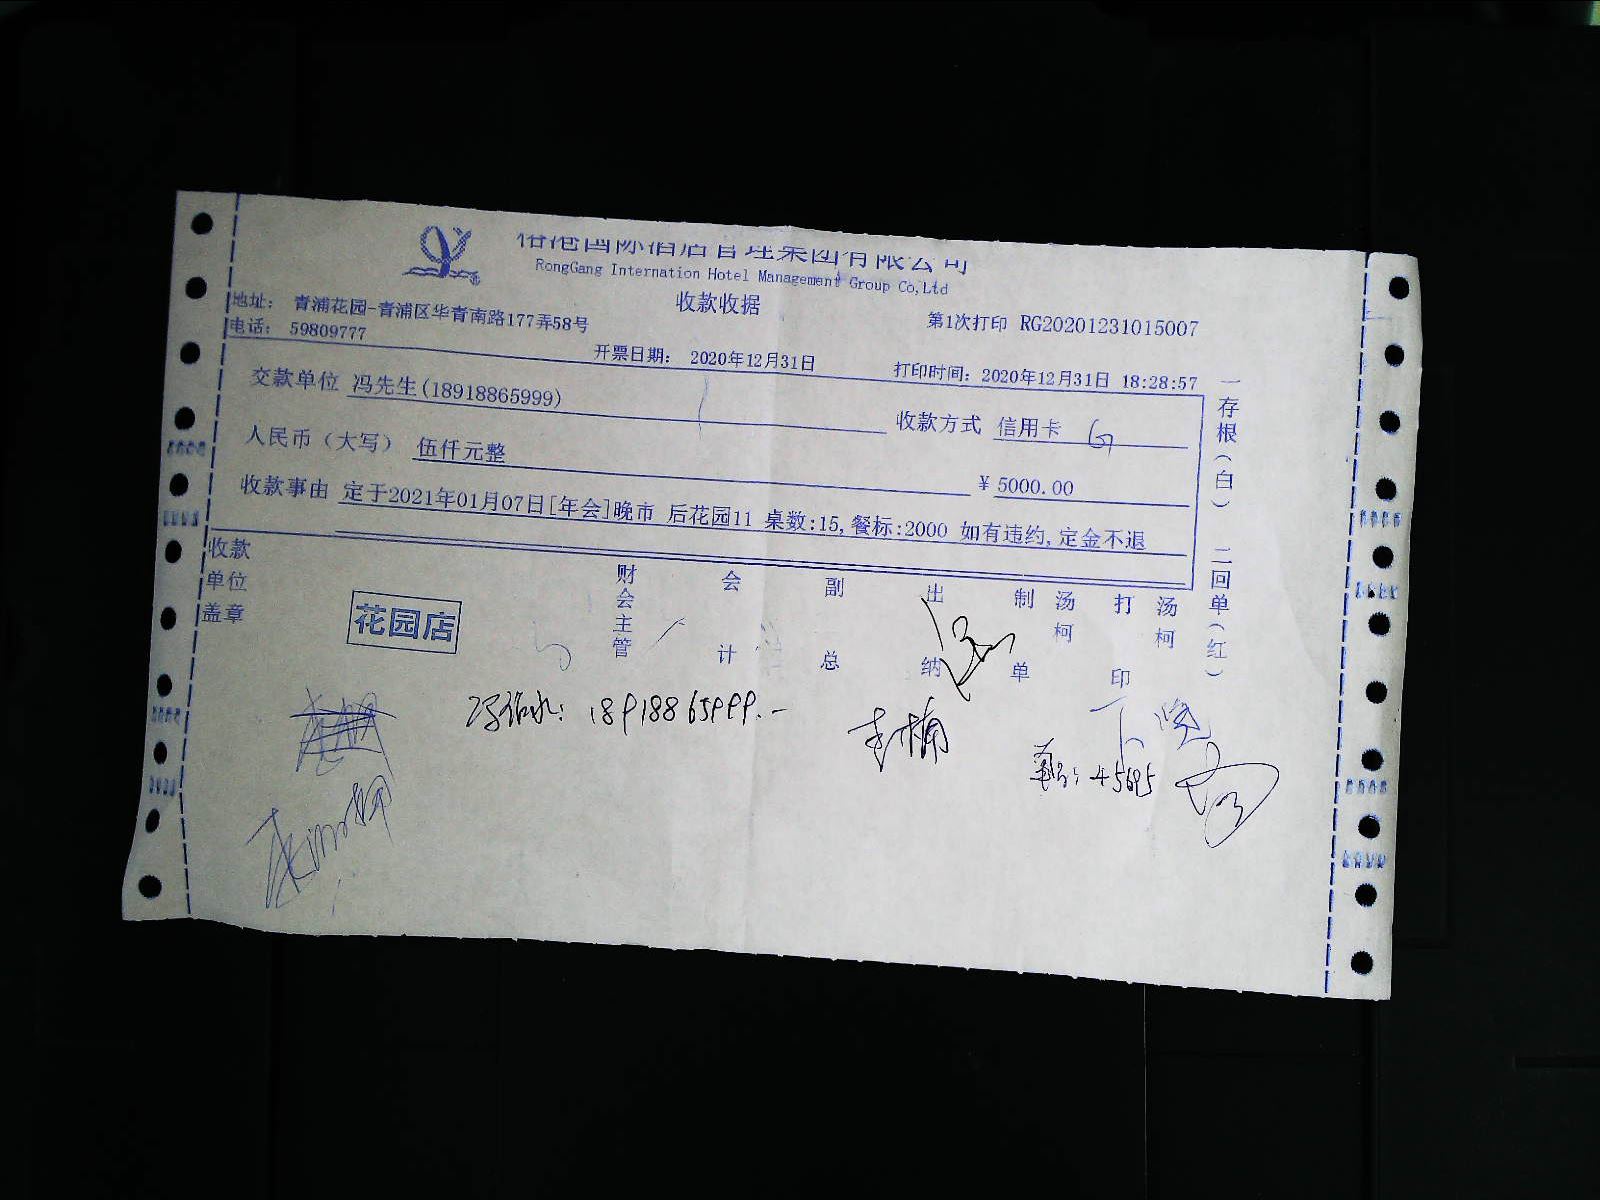 国际酒店管理集团有限公司
RongGang Internation Hotel Management Group Co,Ltd
收款收据
地址: 青浦花园-青浦区华青南路177弄58号
第1次打印 RG20201231015007
电话: 59809777
开票日期: 2020年12月31日
打印时间: 2020年12月31日 18:28:57
交款单位 冯先生(18918865999)
收款方式 信用卡
人民币（大写） 伍仟元整
￥5000.00
收款事由 定于2021年01月07日[年会]晚市 后花园11 桌数:15,餐标:2000 如有违约,定金不退
一存根（白） 二回单（红）
收款单位盖章
花园店
财会主管
会计
副总
出纳
制单 汤柯
打印 汤柯
18918865999.